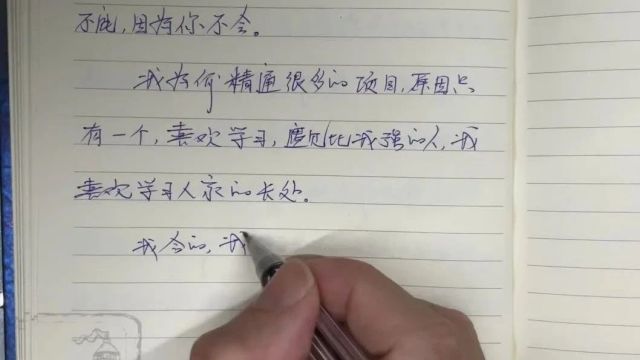 不能，因为你不会。
我为何精通很多的项目，原因只
有一个，喜欢学习，见比我强的人，我
喜欢学习人家的长处。
我会的，我